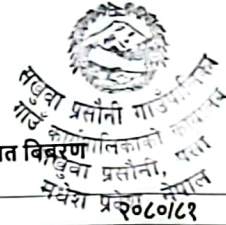 सखुवा प्रसौनी गाउँपालिका
गाउँ कार्यपालिकाको कार्यालय
त बिबरण
सखुवा प्रसौनी, पर्सा
मधेश प्रदेश, नेपाल
२०८०/८१